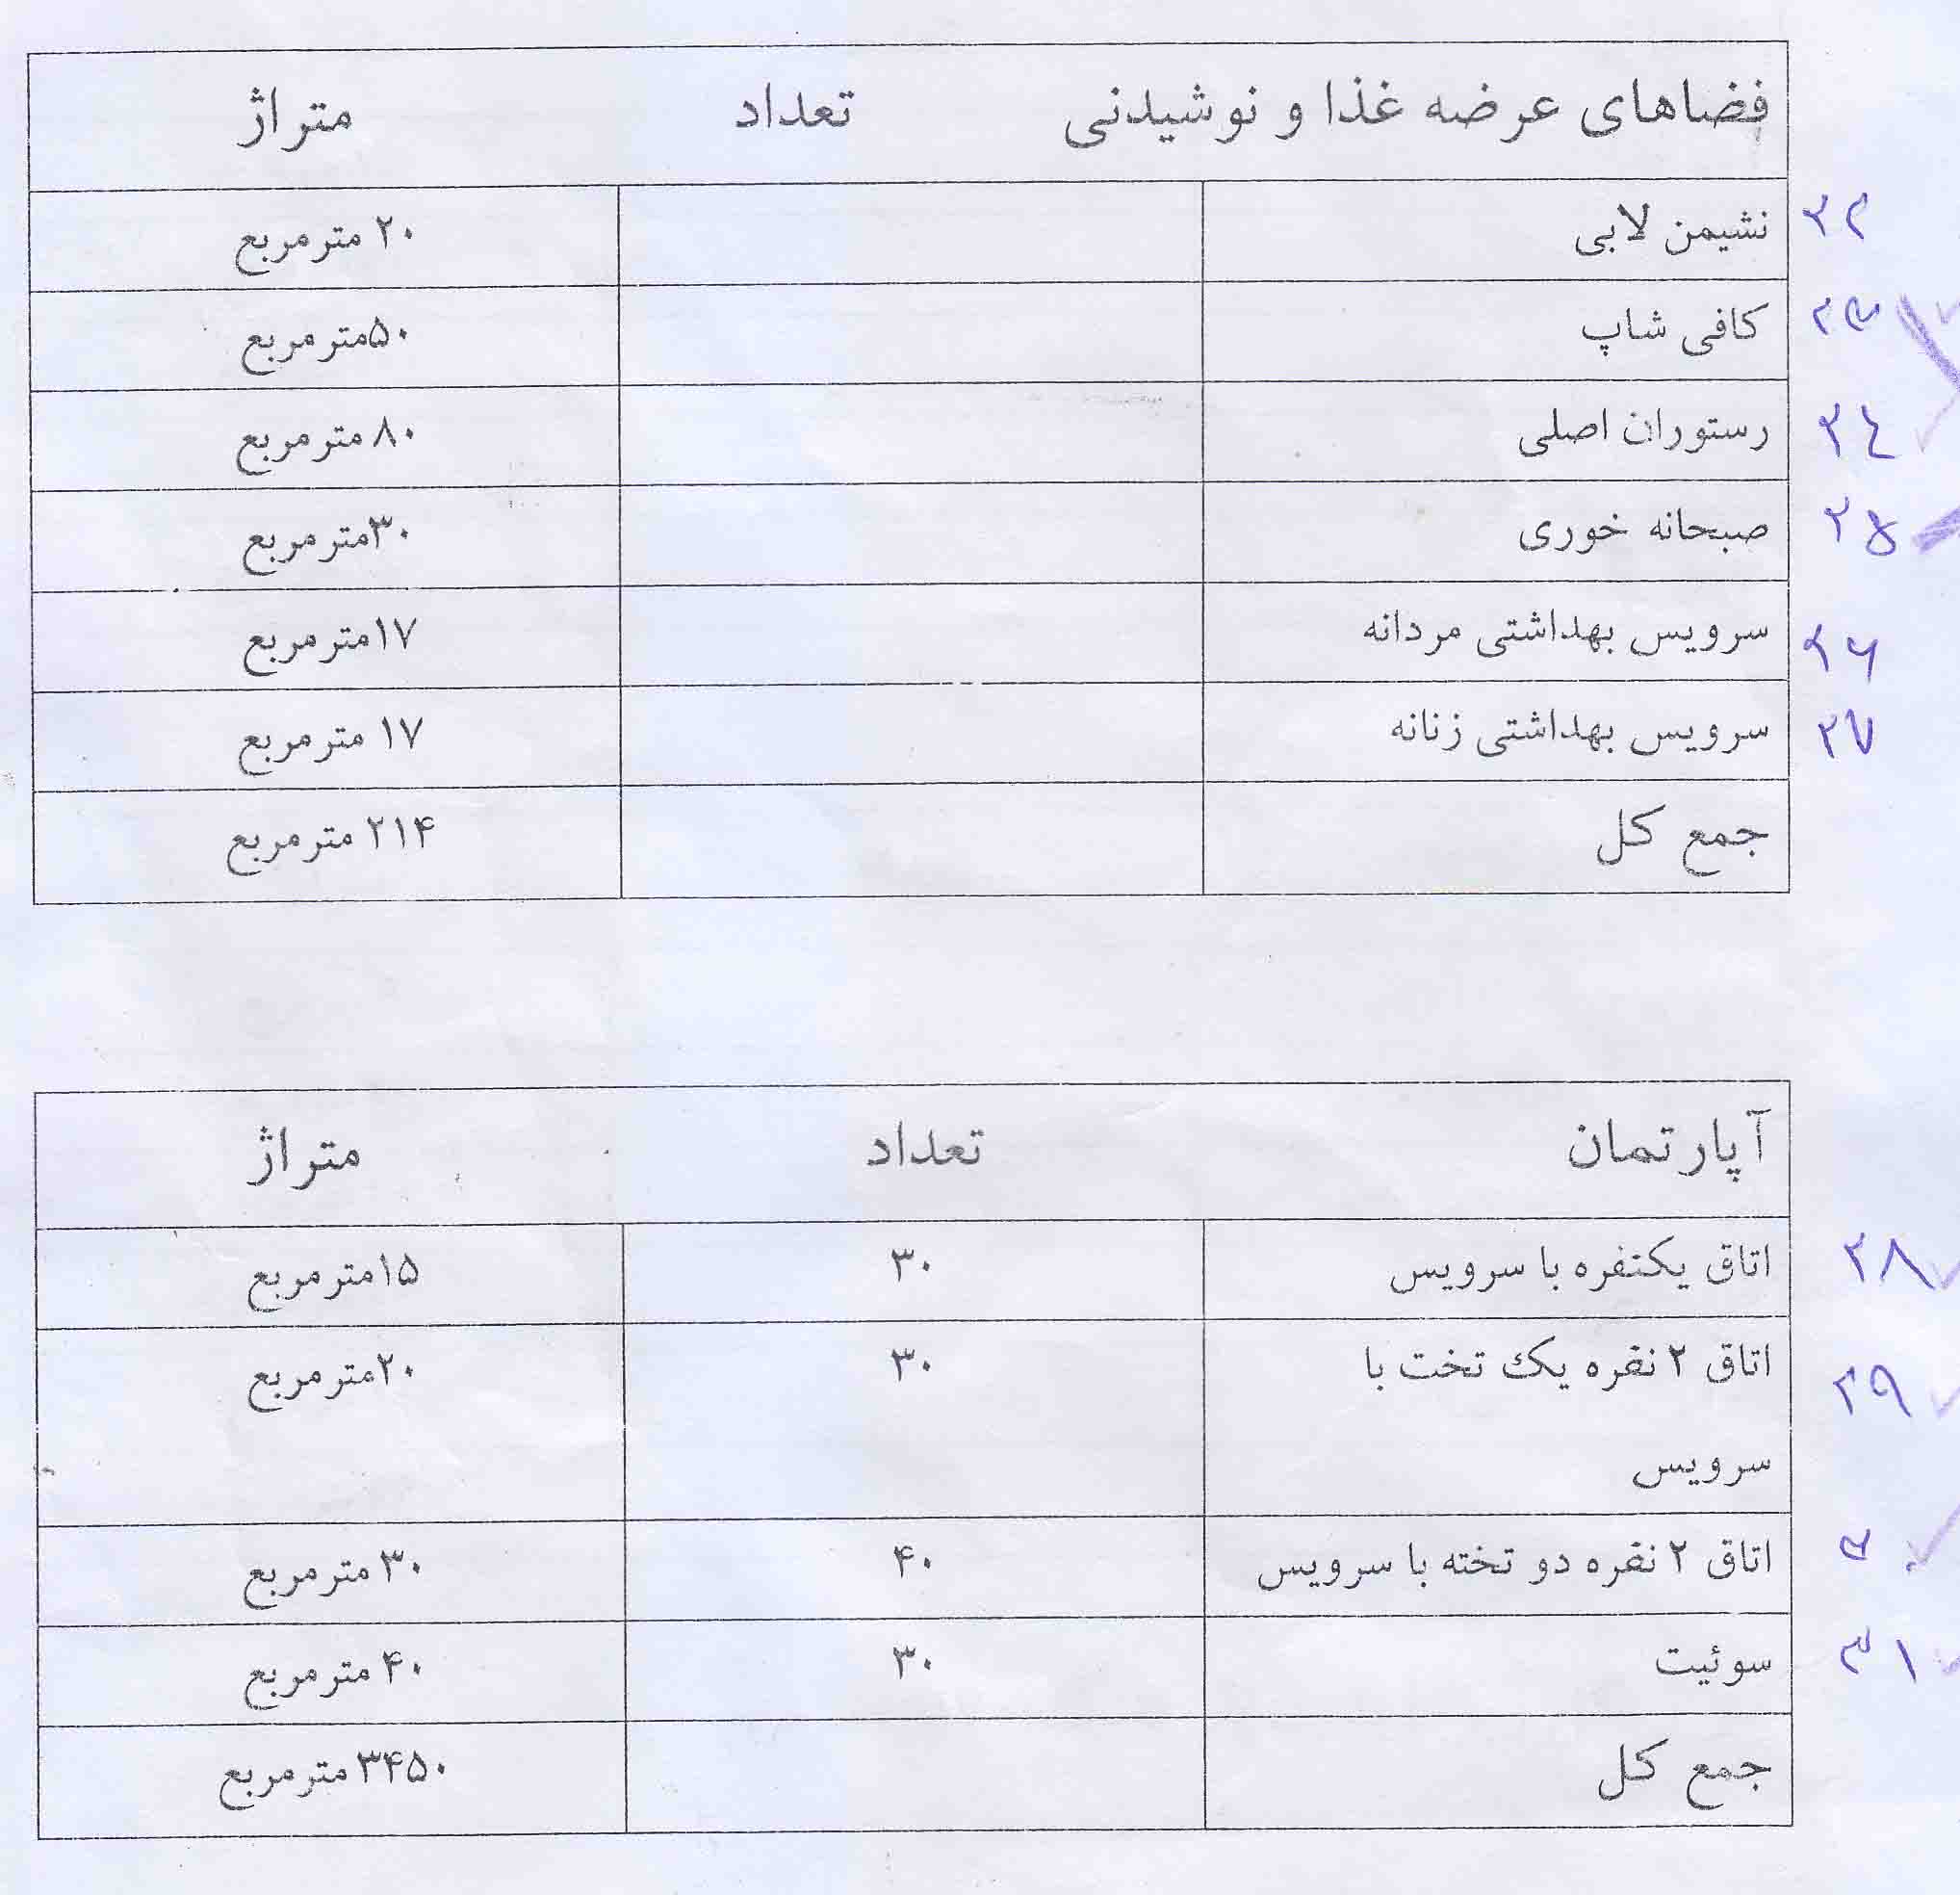 فضاهای عرضه غذا و نوشیدنی تعداد متراژ
۲۲ نشیمن لابی ۲۰ مترمربع
۲۳ کافی شاپ ۵۰مترمربع
۲۴ رستوران اصلی ۸۰ مترمربع
۲۵ صبحانه خوری ۳۰مترمربع
۲۶ سرویس بهداشتی مردانه ۱۷مترمربع
۲۷ سرویس بهداشتی زنانه ۱۷ مترمربع
جمع کل ۲۱۴ مترمربع
آپارتمان تعداد متراژ
۲۸ اتاق یکنفره با سرویس ۳۰ ۱۵مترمربع
۲۹ اتاق ۲ نفره یک تخت با ۳۰ ۲۰مترمربع
سرویس
۳۰ اتاق ۲ نفره دو تخته با سرویس ۴۰ ۳۰ مترمربع
۳۱ سوئیت ۳۰ ۴۰ مترمربع
جمع کل ۳۴۵۰ مترمربع